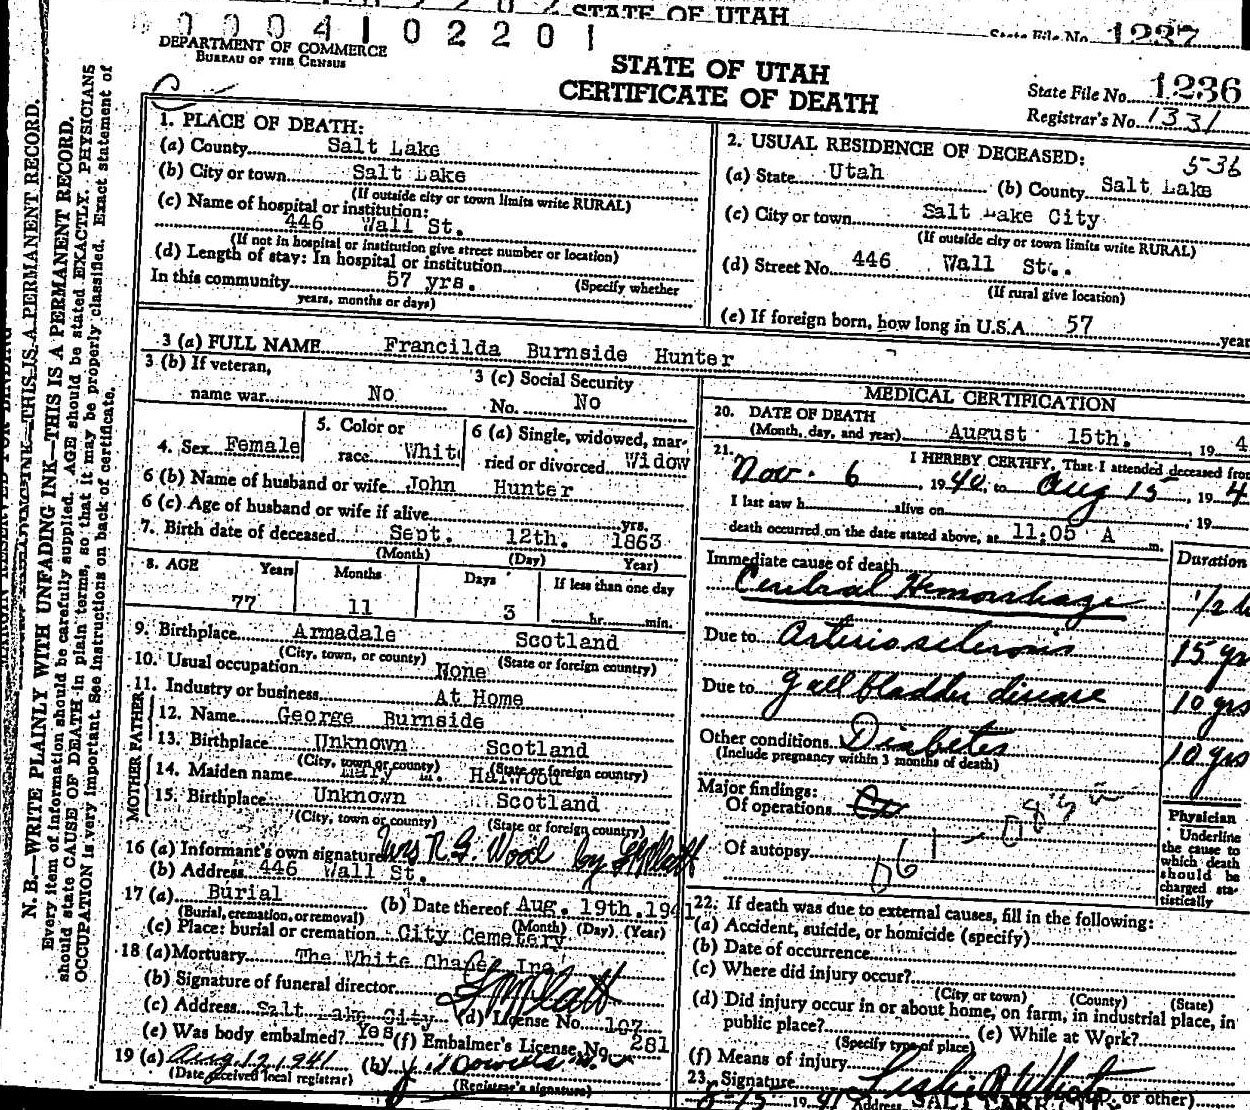 STATE OF UTAH
State File No. 1237
0004102201
DEPARTMENT OF COMMERCE
BUREAU OF THE CENSUS
STATE OF UTAH
CERTIFICATE OF DEATH
State File No. 1236
Registrar's No. 1331
N. B.—WRITE PLAINLY WITH UNFADING INK—THIS IS A PERMANENT RECORD.
Every item of information should be carefully supplied. AGE should be stated EXACTLY. PHYSICIANS
should state CAUSE OF DEATH in plain terms, so that it may be properly classified. Exact statement of
OCCUPATION is very important. See instructions on back of certificate.
1. PLACE OF DEATH:
(a) County Salt Lake
(b) City or town Salt Lake
(If outside city or town limits write RURAL)
(c) Name of hospital or institution:
446 Wall St.
(If not in hospital or institution give street number or location)
(d) Length of stay: In hospital or institution
In this community 57 yrs. (Specify whether
years, months or days)
2. USUAL RESIDENCE OF DECEASED: 5-36
(a) State Utah (b) County Salt Lake
(c) City or town Salt Lake City
(If outside city or town limits write RURAL)
(d) Street No. 446 Wall St.
(If rural give location)
(e) If foreign born, how long in U.S.A. 57 year
3 (a) FULL NAME Francilda Burnside Hunter
3 (b) If veteran,
name war No
3 (c) Social Security
No. No
4. Sex Female
5. Color or
race Whit
6 (a) Single, widowed, mar-
ried or divorced Widow
6 (b) Name of husband or wife John Hunter
6 (c) Age of husband or wife if alive yrs.
7. Birth date of deceased Sept. 12th. 1863
(Month) (Day) Year)
8. AGE Years Months Days If less than one day
77 11 3 hr. min.
9. Birthplace Armadale Scotland
(City, town, or county) (State or foreign country)
10. Usual occupation None
11. Industry or business At Home
FATHER
12. Name George Burnside
13. Birthplace Unknown Scotland
(City, town or county) (State or foreign country)
MOTHER
14. Maiden name Mary
15. Birthplace Unknown Scotland
(City, town or county) (State or foreign country)
16 (a) Informant's own signature Mrs R. G. Wood by
(b) Address 446 Wall St.
17 (a) Burial (b) Date thereof Aug. 19th. 1941
(Burial, cremation, or removal) (Month) (Day) (Year)
(c) Place: burial or cremation City Cemetery
18 (a) Mortuary The White Chapel Inc
(b) Signature of funeral director
(c) Address Salt Lake City (d) License No. 107
(e) Was body embalmed? Yes (f) Embalmer's License No. 281
19 (a) Aug. 12, 1941 (b)
(Date received local registrar) (Registrar's signature)
MEDICAL CERTIFICATION
20. DATE OF DEATH
(Month, day, and year) August 15th. , 19 4
21. I HEREBY CERTIFY, That I attended deceased from
Nov. 6 , 1940, to Aug 15 , 194
I last saw h alive on , 19
death occurred on the date stated above, at 11:05 A m.
Immediate cause of death Duration
Cerebral Hemorrhage 1/2
Due to Arteriosclerosis 15 yr
Due to gall bladder disease 10 yrs
Other conditions Diabetes 10 yrs
(Include pregnancy within 3 months of death)
Major findings:
Of operations
Of autopsy
061
Physician
Underline
the cause to
which death
should be
charged sta-
tistically
22. If death was due to external causes, fill in the following:
(a) Accident, suicide, or homicide (specify)
(b) Date of occurrence
(c) Where did injury occur?
(City or town) (County) (State)
(d) Did injury occur in or about home, on farm, in industrial place, in
public place? (e) While at Work?
(Specify type of place)
(f) Means of injury
23. Signature Leslie D. or other)
8-15 1941 Address SALT LAKE